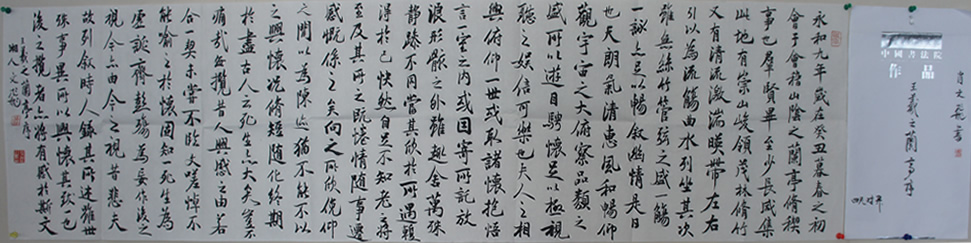 永和九年歲在癸丑暮春之初
會于會稽山陰之蘭亭脩禊
事也群賢畢至少長咸集
此地有崇山峻領茂林脩竹
又有清流激湍暎帶左右
引以為流觴曲水列坐其次
雖無絲竹管弦之盛一觴
一詠亦足以暢叙幽情是日
也天朗氣清惠風和暢仰
觀宇宙之大俯察品類之
盛所以遊目騁懷足以極視
聽之娛信可樂也夫人之相
與俯仰一世或取諸懷抱悟
言一室之內或因寄所託放
浪形骸之外雖趣舍萬殊
靜躁不同當其欣於所遇暫
得於己快然自足不知老之將
至及其所之既惓情隨事遷
感慨係之矣向之所欣俛仰
之間以為陳迹猶不能不以
之興懷況脩短隨化終期
於盡古人云死生亦大矣豈不
痛哉每攬昔人興感之由若
合一契未嘗不臨文嗟悼不
能喻之於懷固知一死生為
虛誕齊彭殤為妄作後之
視今亦由今之視昔悲夫
故列叙時人錄其所述雖世
殊事異所以興懷其致一也
後之攬者亦將有感於斯文
王羲之蘭亭序
湘人文飛
中國書法院
作品
肖文飛書
王羲之蘭亭序
四尺對開